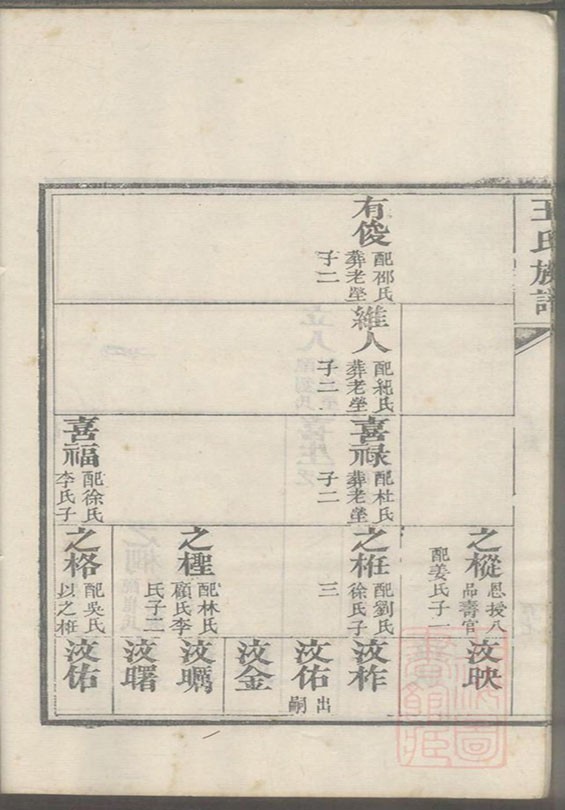 王氏族譜
有俊
配邵氏
葬老塋
子二
維人
配紀氏
葬老塋
子二
喜祿
配杜氏
葬老塋
子二
喜福
配徐氏
李氏子
之樅
恩授八
品壽官
配姜氏子一
之枉
配劉氏
徐氏子
三
之檉
配林氏
顧氏李
氏子二
之格
配吳氏
以之枉
汶映
汶柞
汶佑
出
嗣
汶金
汶曙
汶佑